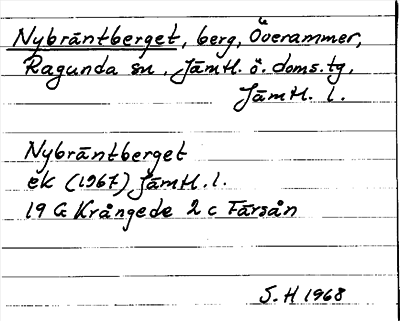 Nybräntberget, berg, Överammer,
Ragunda sn, Jämtl. ö. doms.tg,
Jämtl. l.
Nybräntberget
ek (1967) Jämtl. l.
19 G Krångede 2 c Färsån
S. H 1968